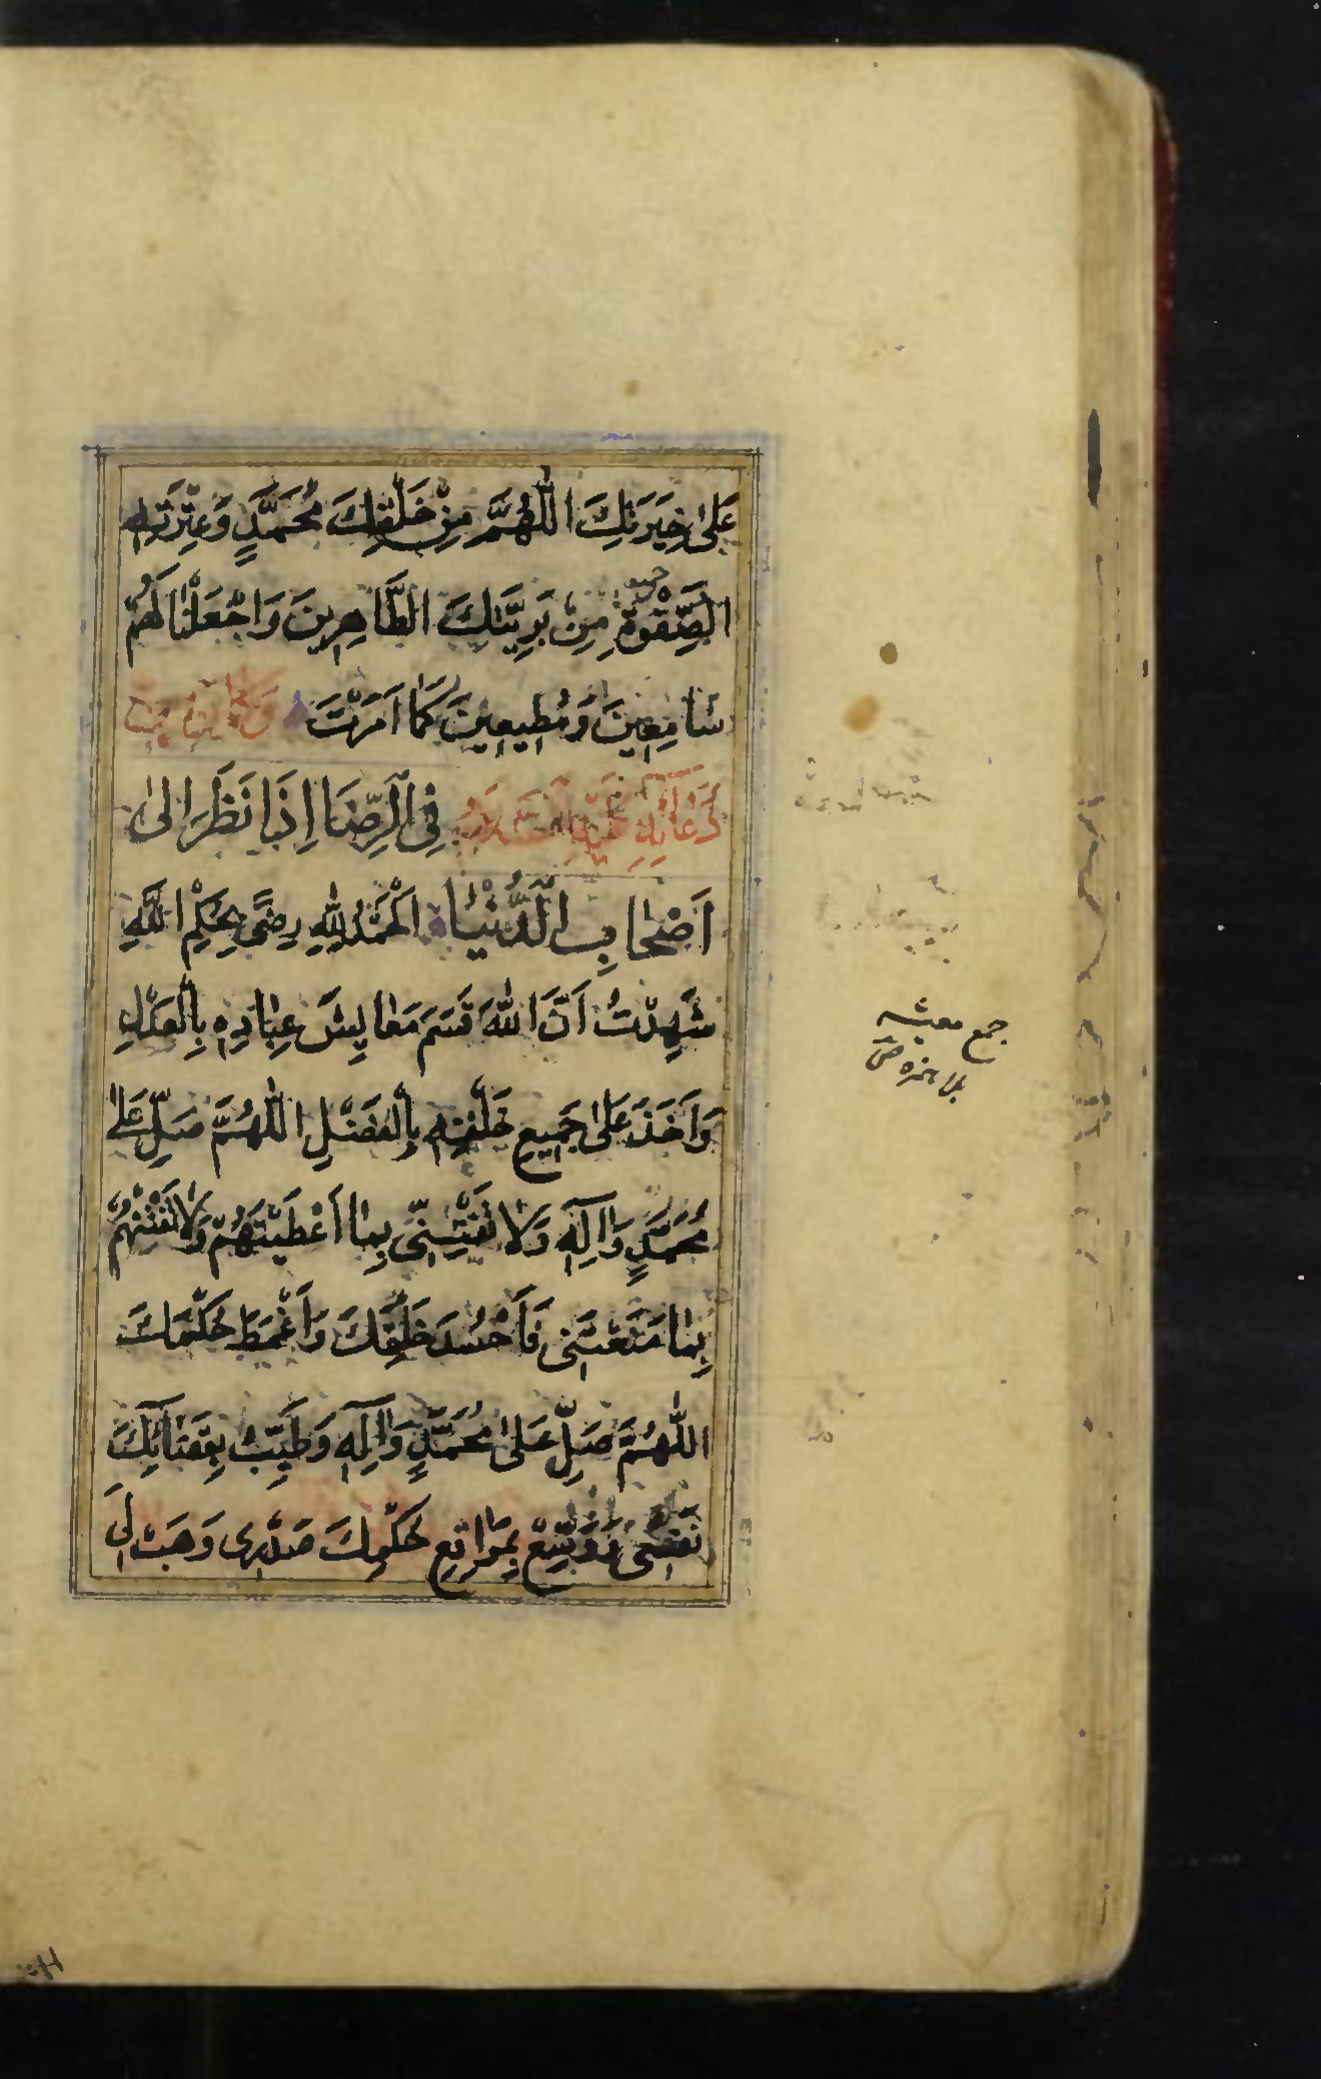 عَلىٰ خِيَرَتِكَ اللّٰهُمَّ مِنْ خَلْقِكَ مُحَمَّدٍ وَعِتْرَتِهِ
الصِّفْوَةِ مِنْ بَرِيَّتِكَ الطَّاهِرِينَ وَاجْعَلْنَا لَهُمْ
سَامِعِينَ وَمُطِيعِينَ كَمَا اَمَرْتَ وَكَانَ مِنْ
دُعَائِهِ عَلَيْهِ السَّلَامُ فِي الرِّضَا اِذَا نَظَرَ اِلىٰ
اَصْحَابِ الدُّنْيَا اَلْحَمْدُ لِلّٰهِ رِضًى بِحُكْمِ اللّٰهِ
شَهِدْتُ اَنَّ اللّٰهَ قَسَمَ مَعَايِشَ عِبَادِهِ بِالْعَدْلِ
وَاَخَذَ عَلىٰ جَمِيعِ خَلْقِهِ بِالْفَضْلِ اللّٰهُمَّ صَلِّ عَلىٰ
مُحَمَّدٍ وَآلِهِ وَلَا تَفْتِنِّى بِمَا اَعْطَيْتَهُمْ وَلَا تَفْتِنْهُمْ
بِمَا مَنَعْتَنِى فَاَحْسُدَ خَلْقَكَ وَاَغْمَطَ حُكْمَكَ
اللّٰهُمَّ صَلِّ عَلىٰ مُحَمَّدٍ وَآلِهِ وَطَيِّبْ بِقَضَائِكَ
نَفْسِى وَوَسِّعْ بِمَوَاقِعِ حُكْمِكَ صَدْرِى وَهَبْ لِىَ
جمع معيشه
بلا همزه صح